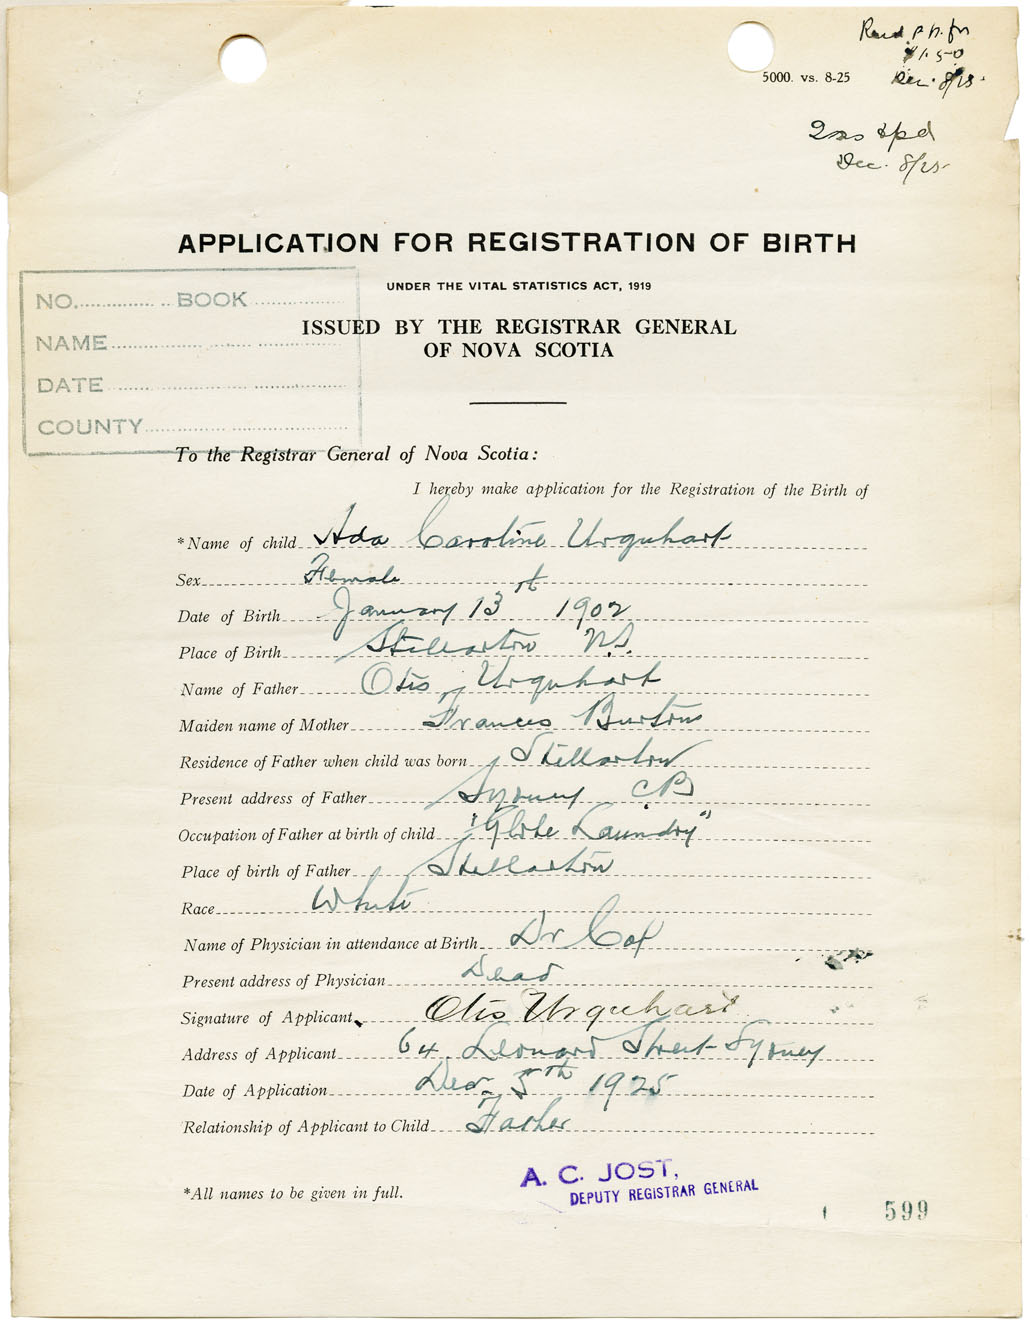 Recd. P.N. for
$1.50
5000. vs. 8-25
Dec. 8/25.
Dec. 8/25
APPLICATION FOR REGISTRATION OF BIRTH
UNDER THE VITAL STATISTICS ACT, 1919
ISSUED BY THE REGISTRAR GENERAL
OF NOVA SCOTIA
NO. BOOK
NAME
DATE
COUNTY
To the Registrar General of Nova Scotia:
I hereby make application for the Registration of the Birth of
*Name of child Ada Caroline Urquhart
Sex Female
Date of Birth January 13th 1902
Place of Birth Stellarton N.S.
Name of Father Otis Urquhart
Maiden name of Mother Frances Burton
Residence of Father when child was born Stellarton
Present address of Father Sydney C.B
Occupation of Father at birth of child "Globe Laundry"
Place of birth of Father Stellarton
Race White
Name of Physician in attendance at Birth Dr Cox
Present address of Physician Dead
Signature of Applicant Otis Urquhart
Address of Applicant 64. Leonard Street Sydney
Date of Application Dec. 5th 1925
Relationship of Applicant to Child Father
A. C. JOST,
DEPUTY REGISTRAR GENERAL
*All names to be given in full.
599